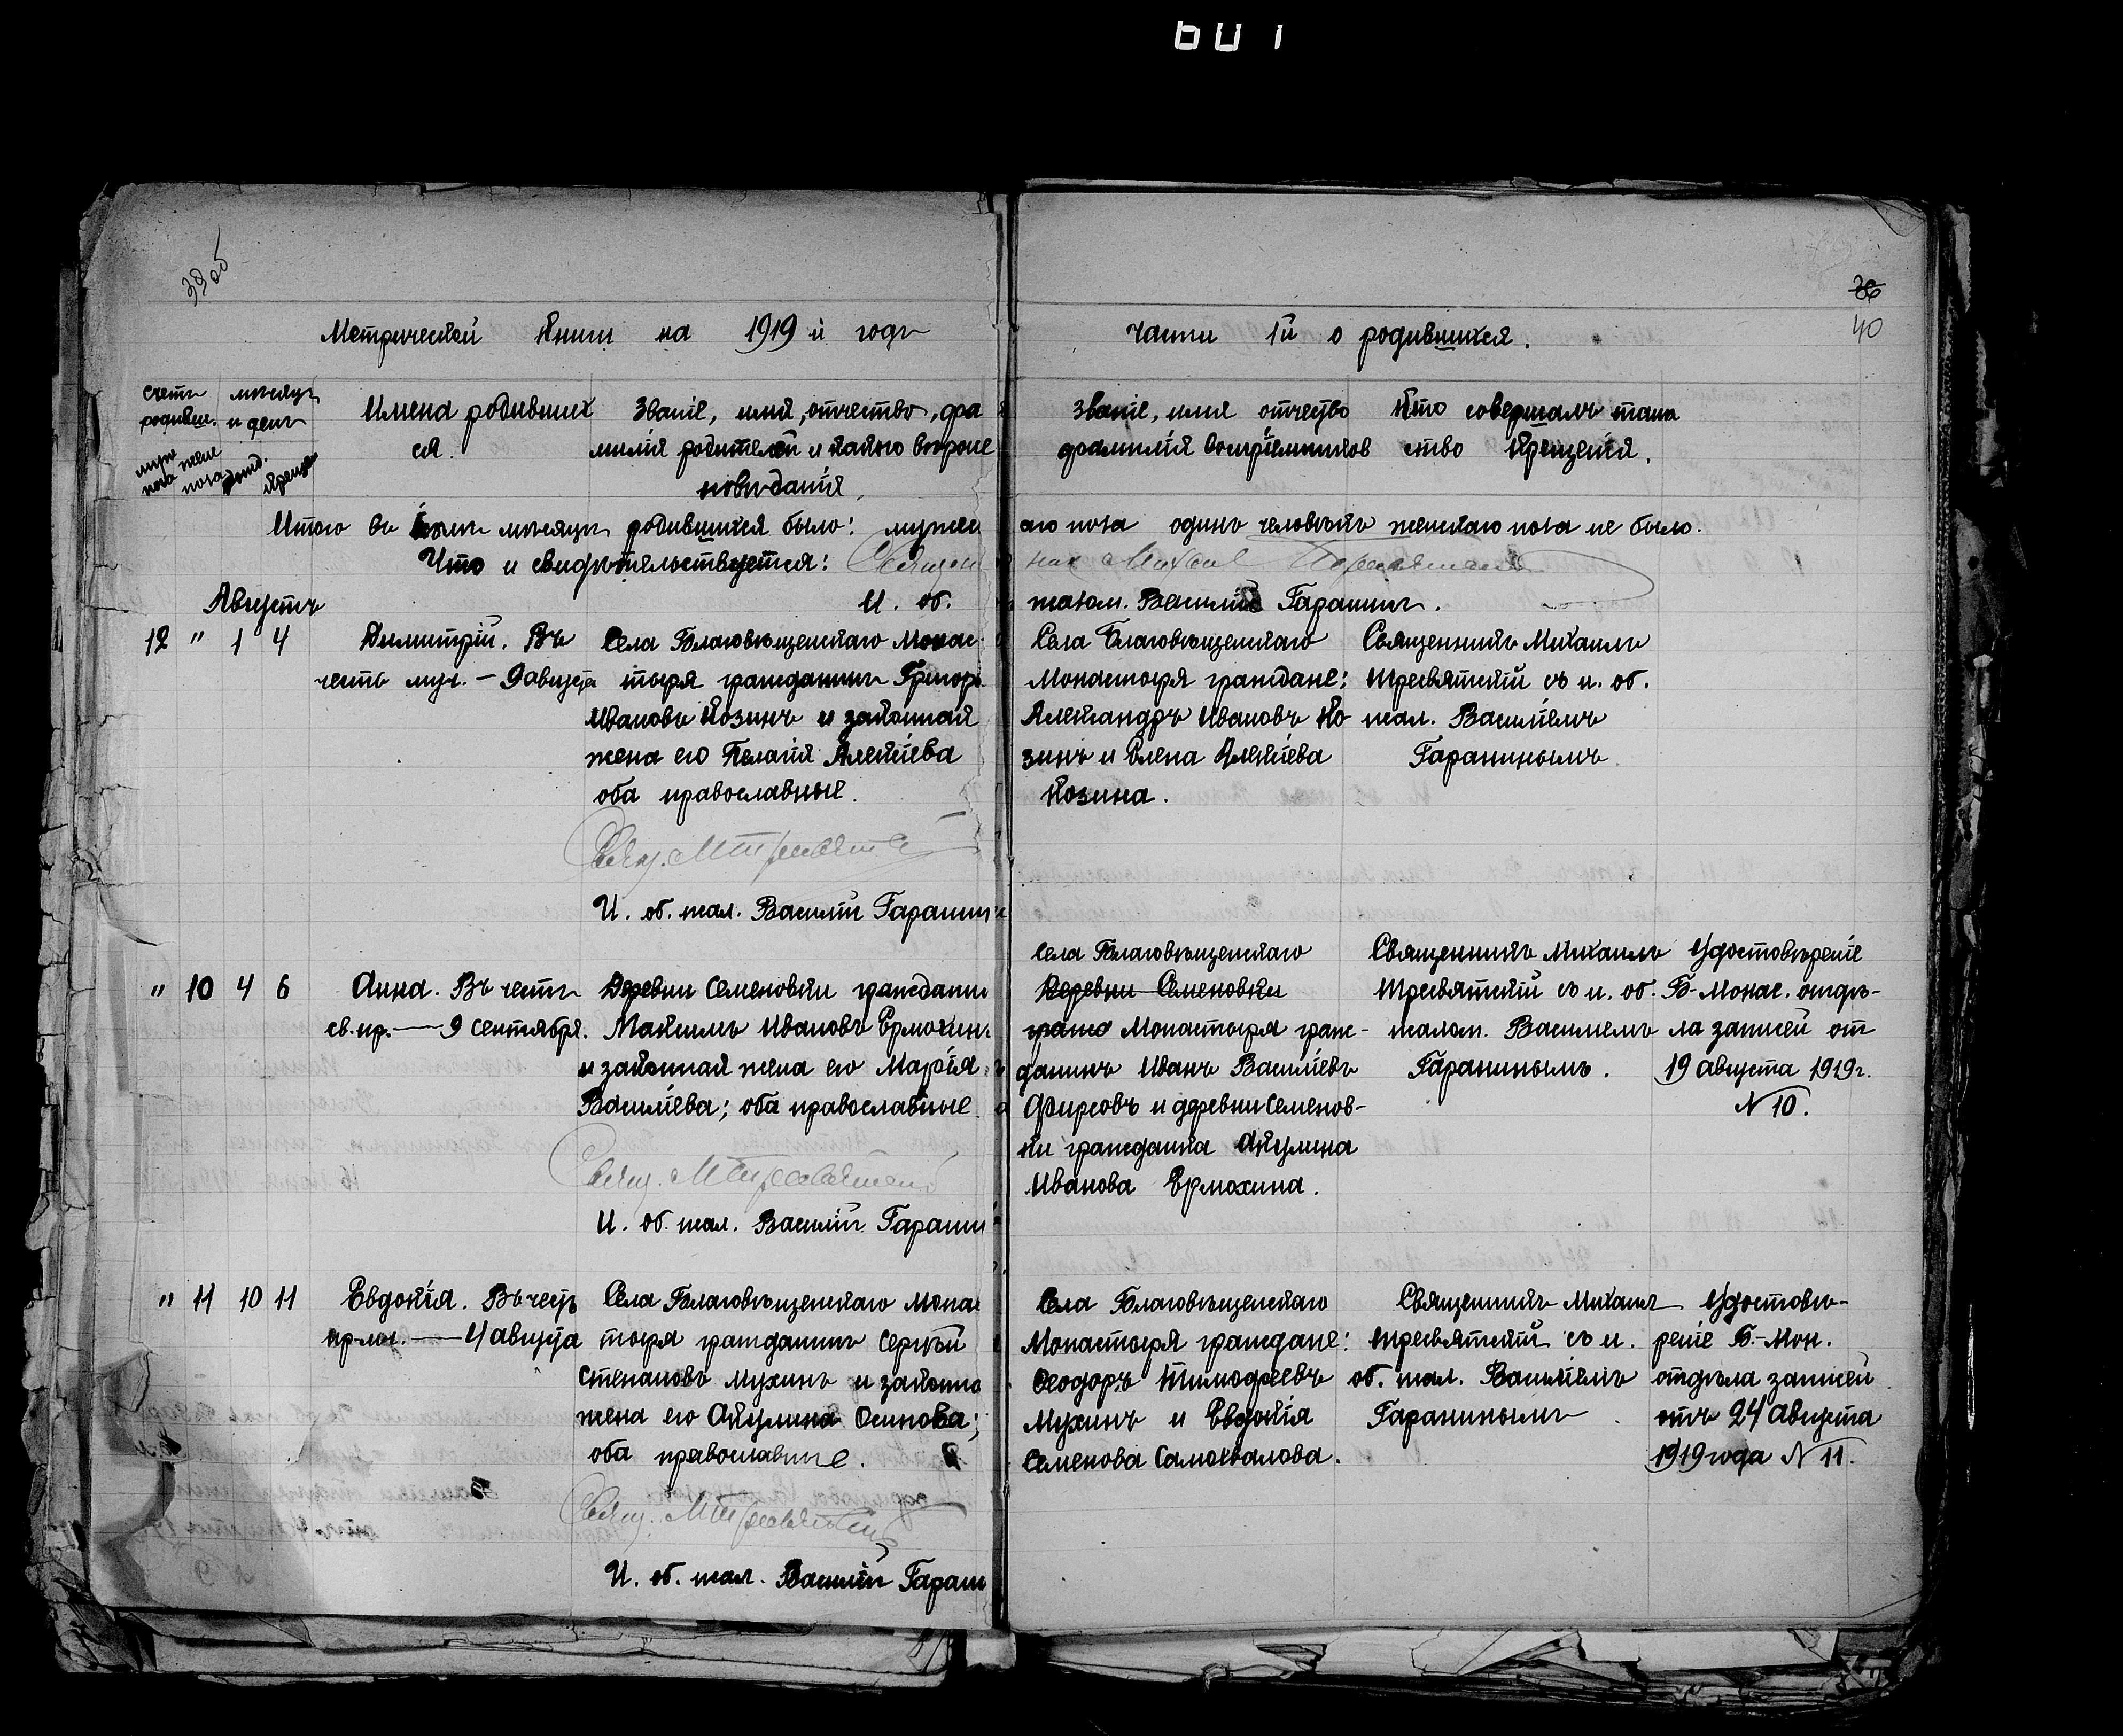 601
39об
36
40
Метрической Книги на 1919 й годъ
части 1й о родившихся.
счетъ родивш. мѣсяцъ и день
муж пола жен пола рожд. крещен
Имена родивших
ся.
Званіе, имя, отчество, фа
милія родителей и какого вѣроис
повѣданія.
Званіе, имя отчество
фамилія воспріемниковъ
Кто совершалъ таин
ство Крещенія.
Итого въ Іюлѣ мѣсяцѣ родившихся было: мужск
аго пола одинъ человѣкъ женскаго пола не было.
Что и свидѣтельствуется: Священ
ник Михаил
И. об.
псалом. Василій Гаранинъ.
Августъ
12 " 1 4
Димитрій. Въ
честь муч. — 9 августа
Села Благовѣщенскаго Монас-
тыря гражданинъ Григорій
Ивановъ Козинъ и законная
жена его Пелагія Алексіева
оба православные.
Свящ. М Тресвятскій
И. об. псал. Василій Гаранинъ
Села Благовѣщенскаго
Монастыря граждане:
Александръ Ивановъ Ко
зинъ и Елена Алексіева
Козина.
Священникъ Михаилъ
Тресвятскій съ и. об.
псал. Василіемъ
Гаранинымъ.
" 10 4 6
Анна. Въ честь
св. пр. — 9 Сентября.
Деревни Семеновки гражданин
Максимъ Ивановъ Ермохинъ
и законная жена его Марія
Василіева; оба православные.
Свящ. М Тресвятскій
И. об. псал. Василій Гаранин
Села Благовѣщенскаго
Деревни Семеновки
граждан Монастыря граж-
данинъ Иванъ Василіевъ
Фирсовъ и деревни Семенов-
ки гражданка Акулина
Иванова Ермохина.
Священникъ Михаилъ
Тресвятскій съ и. об.
псалом. Василіемъ
Гаранинымъ.
Удостовѣреніе
Б-Монас. отдѣ-
ла записей от
19 августа 1919г.
N 10.
" 11 10 11
Евдокія. Въ честь
пр. мч. — 4 августа
Села Благовѣщенскаго Монас
тыря гражданинъ Сергѣй
Степановъ Мухинъ и законна
жена его Акулина Осипова;
оба православные.
Свящ. М Тресвятскій
И. об. псал. Василій Гаран
Села Благовѣщенскаго
Монастыря граждане:
Ѳеодоръ Тимофеевъ
Мухинъ и Евдокія
Семенова Самохвалова.
Священникъ Михаил
Тресвятскій съ и.
об. псал. Василіемъ
Гаранинымъ
Удостовѣ-
реніе Б.-Мон.
отдѣла записей
отъ 24 Августа
1919 года N 11.